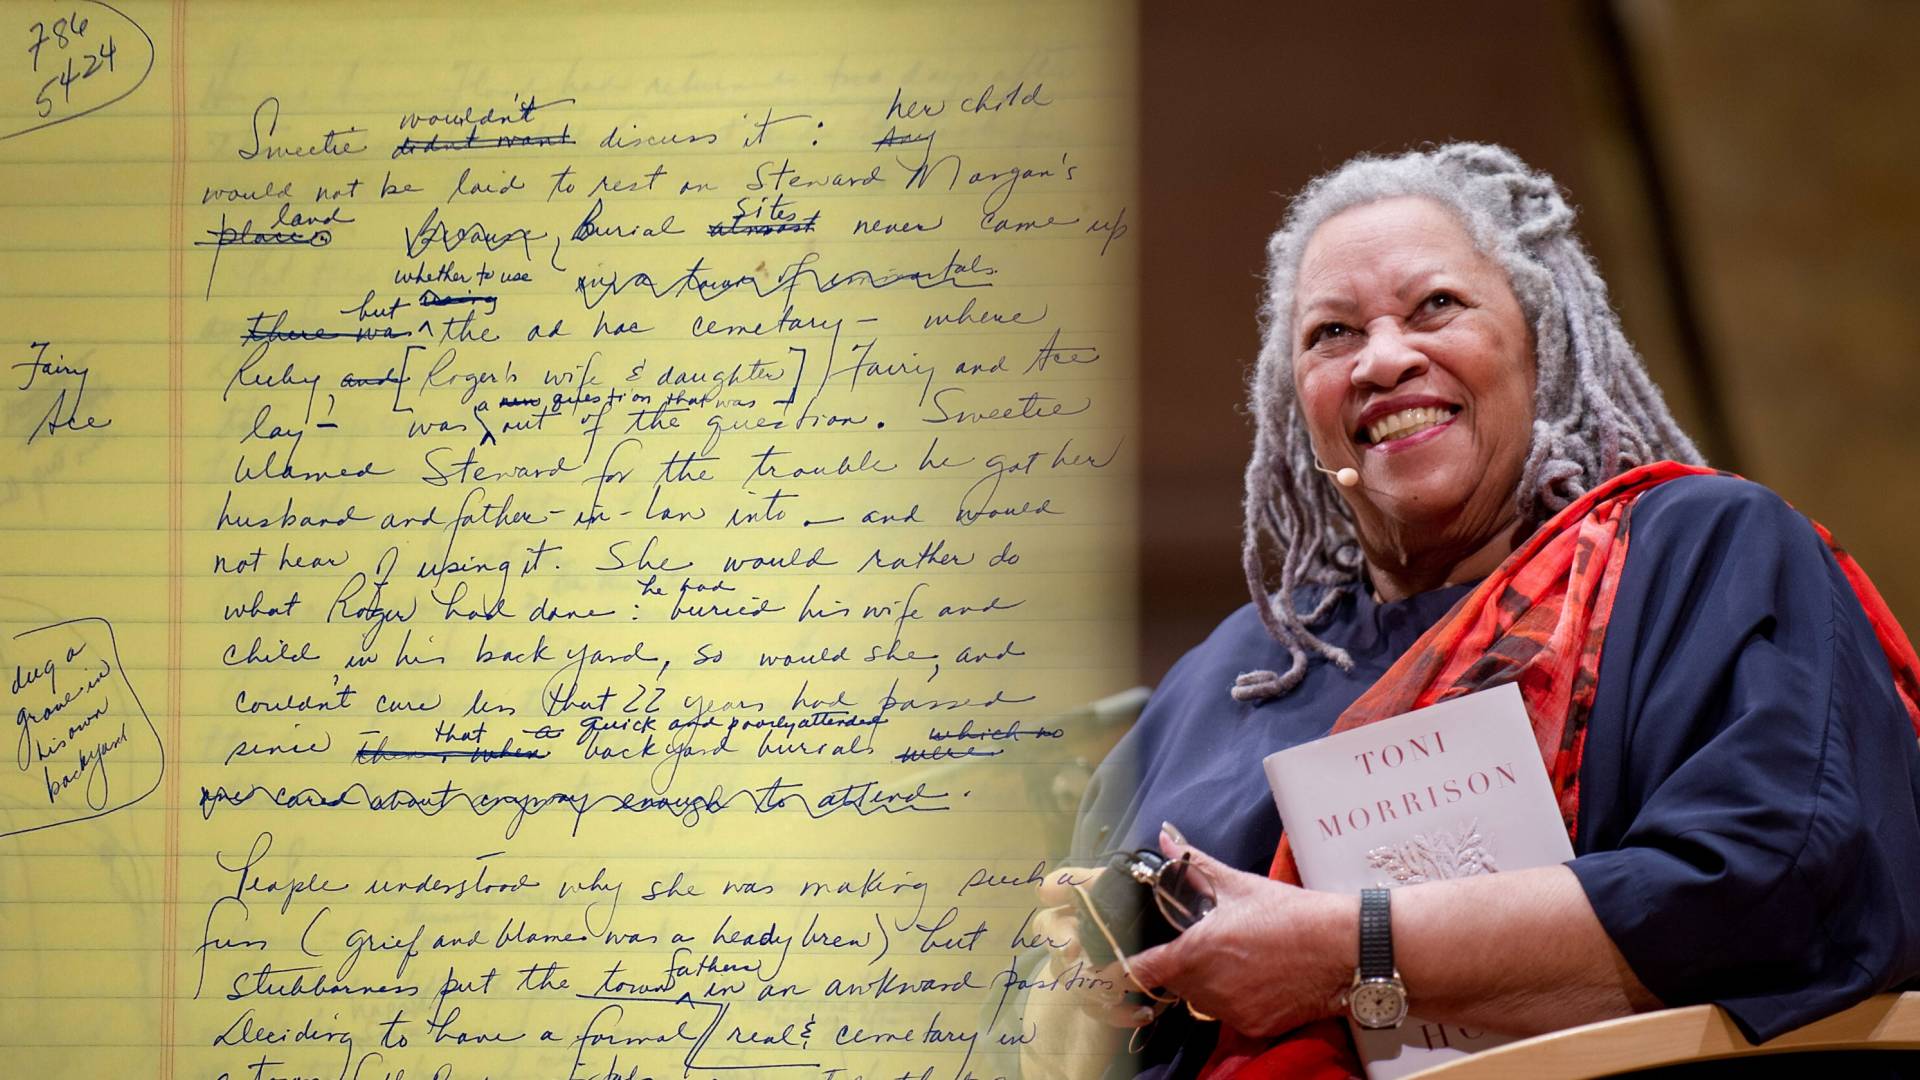 786
5424
wouldn't her child
Sweetie didn't want discuss it : Any
would not be laid to rest on Steward Morgan's
land sites
place. Because, Burial almost never came up
whether to use in a town of immortals.
but using
there was ^ the ad hoc cemetary – where
Fairy
Ruby, and [Roger's wife & daughter] Fairy and Ace
Ace
a new question that was –
lay – was out of the question. Sweetie
blamed Steward for the trouble he got her
husband and father-in-law into – and would
not hear of using it. She would rather do
he had
what Roger had done : buried his wife and
child in his back yard, so would she, and
dug a
grave in
his own
backyard
couldn't care less that 22 years had passed
that a quick and poorly attended which no
since then, when backyard burials were
one cared about anyway enough to attend.
People understood why she was making such a
fuss (grief and blame was a heady brew) but her
fathers
stubborness put the town ^ in an awkward position.
Deciding to have a formal / real & cemetary in
a town
TONI
MORRISON
HO